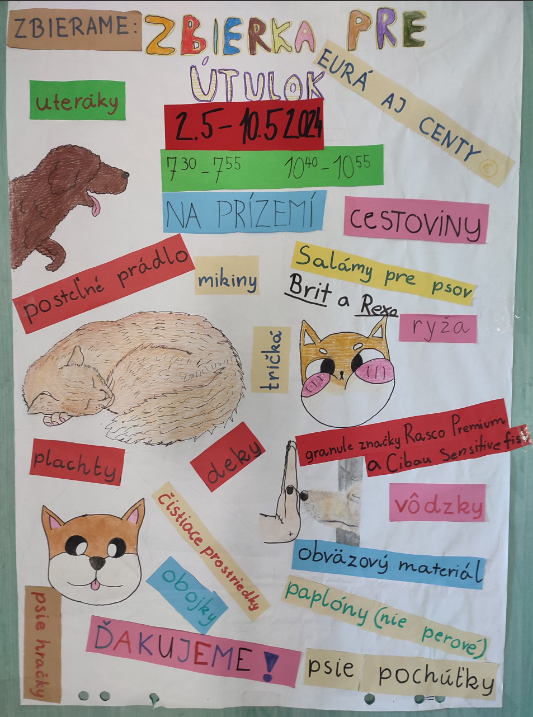 ZBIERAME:
ZBIERKA PRE
ÚTULOK
EURÁ AJ CENTY
uteráky
2.5 - 10.5 2024
7³⁰ - 7⁵⁵ 10⁴⁰ - 10⁵⁵
NA PRÍZEMÍ
cestoviny
postelné prádlo
mikiny
Salámy pre psov
Brit a Rexa
ryža
tričká
granule značky Rasco Premium
a Cibau Sensitive fish
plachty
deky
vôdzky
čistiace prostriedky
obväzový materiál
obojky
paplóny (nie perové)
psie hračky
ĎAKUJEME!
psie pochúťky